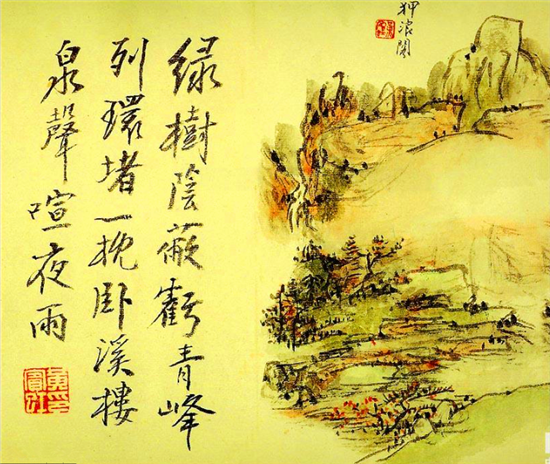 狎浪閣
緑樹陰蔽虧青峰
列環堵一枕卧溪樓
泉聲喧夜雨